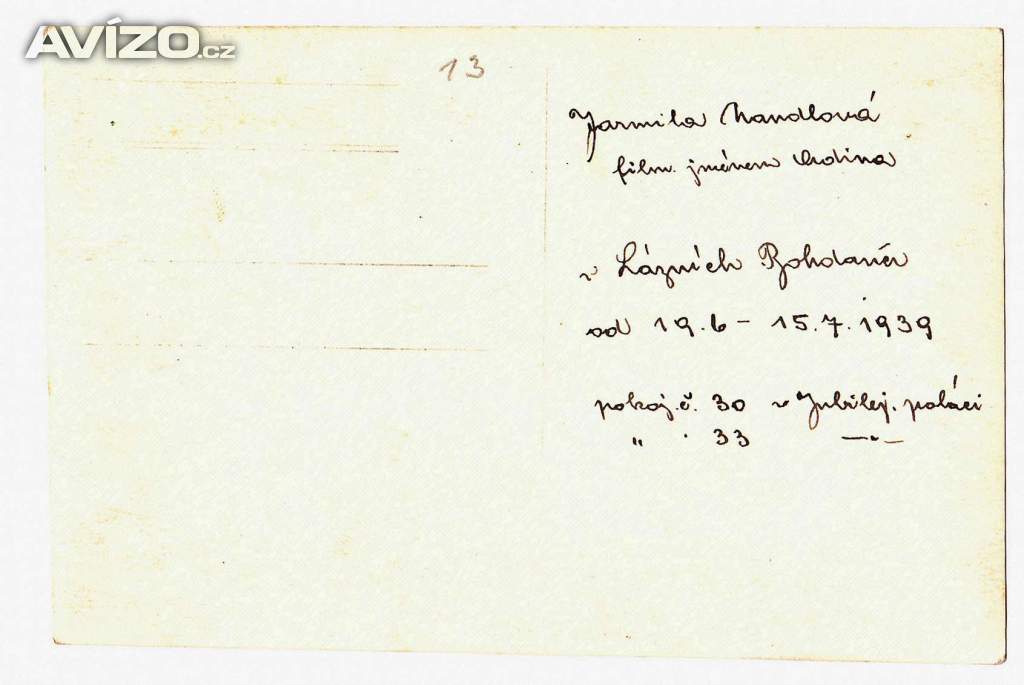 AVÍZO.cz
13
Jarmila Mandlová
film. jménem Adina
v Lázních Bohdaneč
od 19.6 - 15.7.1939
pokoj.č. 30 v Jubilej. paláci
" . 33 —"—